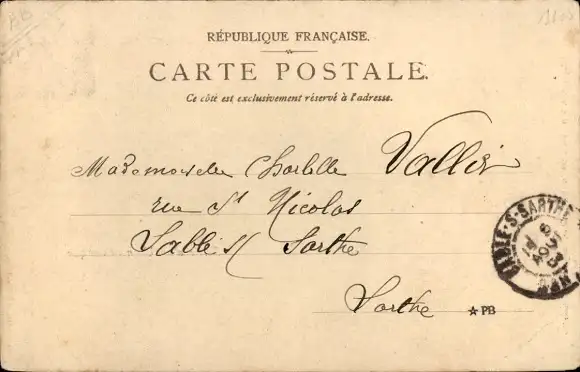 RÉPUBLIQUE FRANÇAISE.
CARTE POSTALE.
Ce côté est exclusivement réservé à l'adresse.
Mademoiselle Vallier
rue St Nicolas
Sablé s/ Sarthe
Sarthe
★ PB
SABLÉ-S-SARTHE